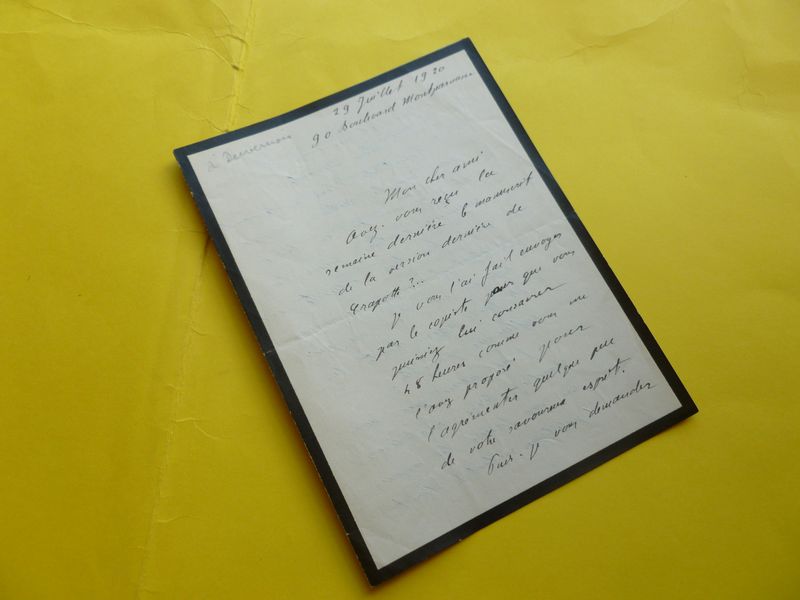 29 Juillet 1920
90 Boulevard Montparnasse
à
Mon cher ami
Avez-vous reçu la
semaine dernière le manuscrit
de la version dernière de
?...
Je vous l'ai fait envoyer
par le copiste pour que vous
puissiez lui consacrer
48 heures comme vous me
l'avez proposé pour
l'agrémenter quelque peu
de votre savoureux esprit.
Puis-je vous demander